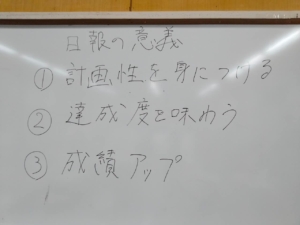 日報の意義
① 計画性を身につける
② 達成度を味わう
③ 成績アップ